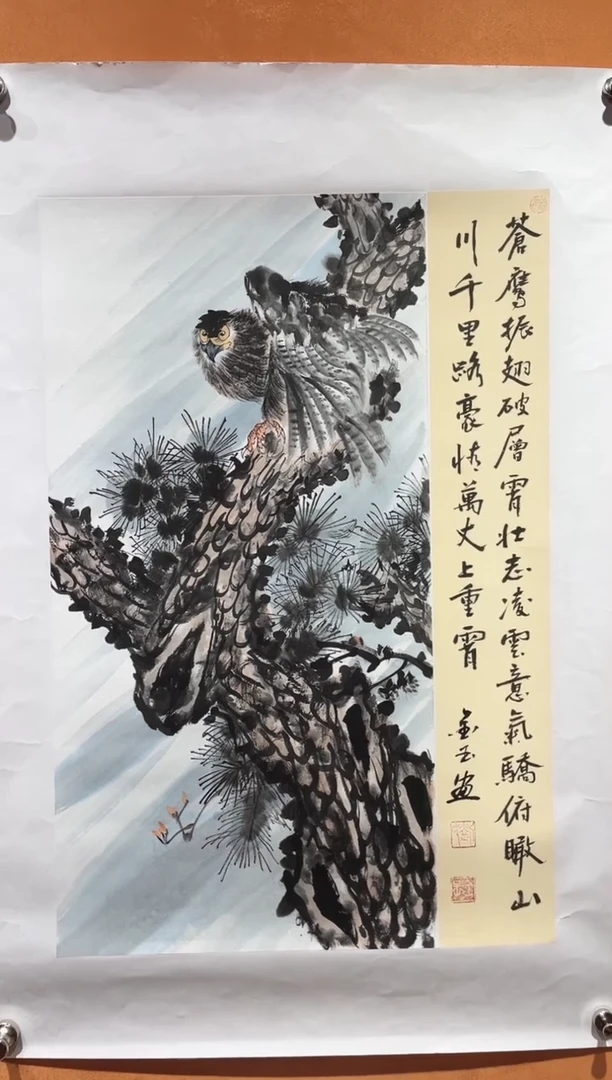 蒼鹰振翅破層霄壮志凌雲意氣驕俯瞰山
川千里路豪情萬丈上重霄
金玉画